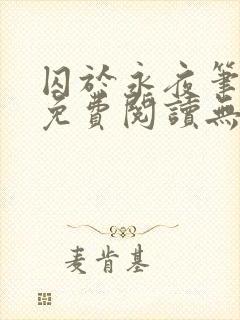 囚於永夜筆
免費閱讀無
麦肯基